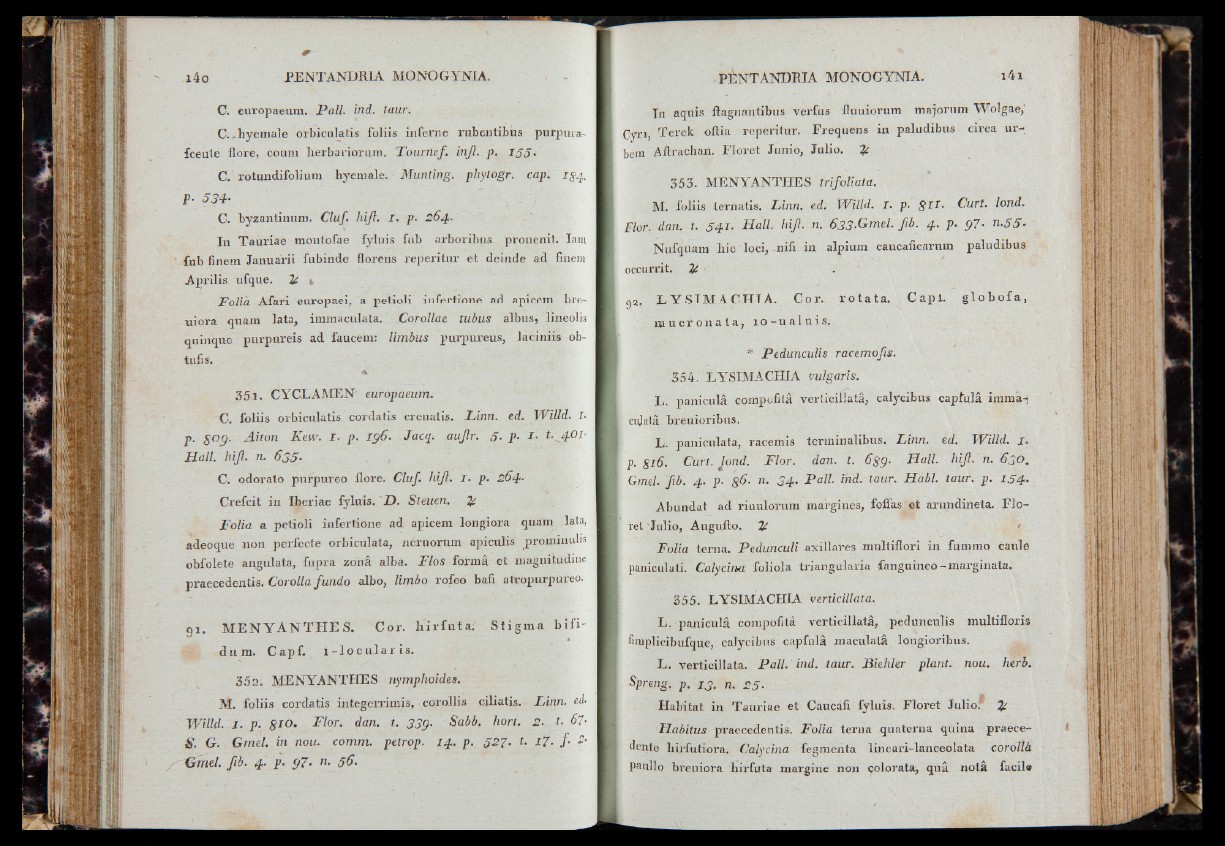 140 PENTANDRIA MONOGYNIA.
C. europaeum. Pall. ind. taur.
C. hyemale orbiculatis foliis inferne rubentibus purpura-
ſcente flore, coum herbariorum. Tournef. inſt. p. 155.
C. rotundifolium hyemale. Munting. phytogr. cap. 184.
p. 534.
C. byzantinum. Cluſ. hiſt. 1. p. 264.
In Tauriae montoſae ſyluis ſub arboribus prouenit. Iam
ſub finem Januarii ſubinde florens reperitur et deinde ad finem
Aprilis uſque. ♃
Folia Aſari europaei, a petioli inſertione ad apicem bre-
uiora quam lata, immaculata. Corollae tubus albus, lineolis
quinque purpureis ad faucem: limbus purpureus, laciniis ob-
tuſis.
351. CYCLAMEN europaeum.
C. foliis orbiculatis cordatis crenatis. Linn. ed. Willd. 1.
p. 809. Aiton Kew. 1. p. 196. Jacq. auſtr. 5. p. 1. t. 401.
Hall. hiſt. n. 635.
C. odorato purpureo flore. Cluſ. hiſt. 1. p. 264.
Creſcit in Iberiae ſyluis. D. Steuen. ♃
Folia a petioli inſertione ad apicem longiora quam lata,
adeoque non perfecte orbiculata, neruorum apiculis prominulis
obſolete angulata, ſupra zonâ alba. Flos formâ et magnitudine
praecedentis. Corolla fundo albo, limbo roſeo baſi atropurpureo.
91. MENYANTHES. Cor. hirſuta. Stigma bifi-
dum. Capſ. 1-locularis.
352. MENYANTHES nymphoides.
M. foliis cordatis integerrimis, corollis ciliatis. Linn. ed.
Willd. 1. p. 810. Flor. dan. t. 339. Sabb. hort. 2. t. 67.
S. G. Gmel. in nou. comm. petrop. 14. p. 527. t. 17. f. 2.
Gmel. ſib. 4. p. 97. n. 56.
PENTANDRIA MONOGYNIA. 141
In aquis ſtagnantibus verſus fluuiorum majorum Wolgae,
Cyri, Terek oſtia reperitur. Frequens in paludibus circa ur-
bem Aſtrachan. Floret Junio, Julio. ♃
353. MENYANTHES trifoliata.
M. foliis ternatis. Linn. ed. Willd. 1. p. 811. Curt. lond.
Flor. dan. t. 541. Hall. hiſt. n. 633. Gmel. ſib. 4. p. 97. n. 55.
Nuſquam hic loci, niſi in alpium caucaſicarum paludibus
occurrit. ♃
92. LYSIMACHIA. Cor. rotata. Capſ. globoſa,
mucronata, 10-ualuis.
* Pedunculis racemoſis.
354. LYSIMACHIA vulgaris.
L. paniculâ compoſitâ verticillatâ, calycibus capſulâ imma-
culatâ breuioribus.
L. paniculata, racemis terminalibus. Linn. ed. Willd. 1.
p. 816. Curt. lond. Flor. dan. t. 689. Hall. hiſt. n. 630.
Gmel. ſib. 4. p. 86. n. 34. Pall. ind. taur. Habl. taur. p. 154.
Abundat ad riuulorum margines, foſſas et arundineta. Flo-
ret Julio, Auguſto. ♃
Folia terna. Pedunculi axillares multiflori in ſummo caule
paniculati. Calycina foliola triangularia ſanguineo-marginata.
355. LYSIMACHIA verticillata.
L. paniculâ compoſitâ verticillatâ, pedunculis multifloris
ſimplicibuſque, calycibus capſulâ maculatâ longioribus.
L. verticillata. Pall. ind. taur. Biehler plant. nou. herb.
Spreng. p. 13. n. 25.
Habitat in Tauriae et Caucaſi ſyluis. Floret Julio. ♃
Habitus praecedentis. Folia terna quaterna quina praece-
dente hirſutiora. Calycina ſegmenta lineari-lanceolata corollâ
paullo breuiora hirſuta margine non colorata, quâ notâ facile